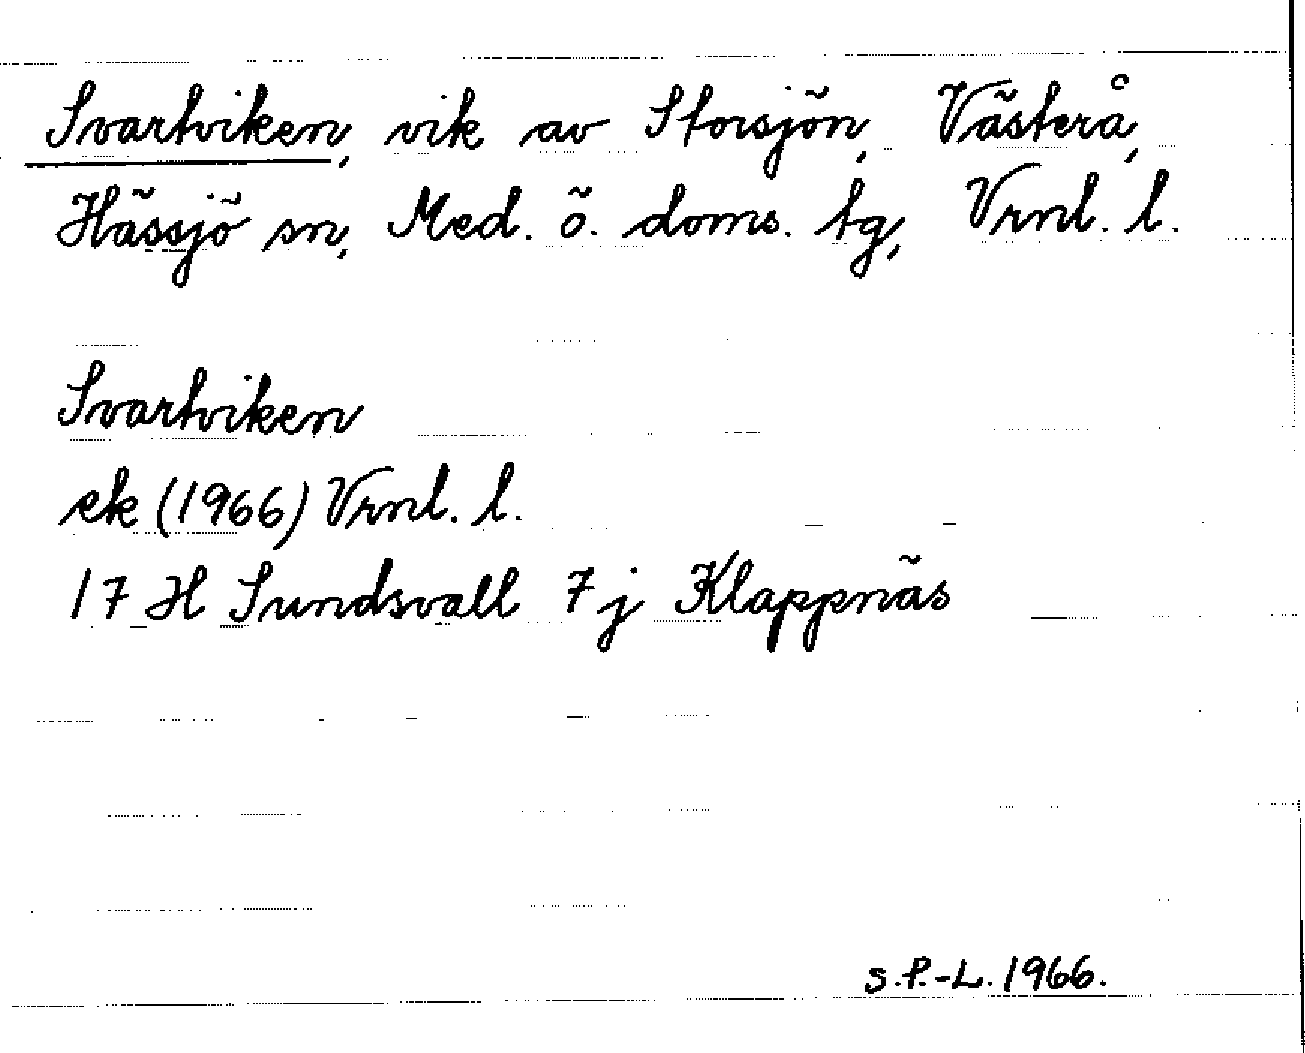 Svartviken, vik av Storsjön, Västerå,
Hässjö sn, Med. ö. doms. tg, Vrnl. l.
Svartviken
ek (1966) Vrnl. l.
17 H Sundsvall 7 j Klappnäs
S.P.-L. 1966.